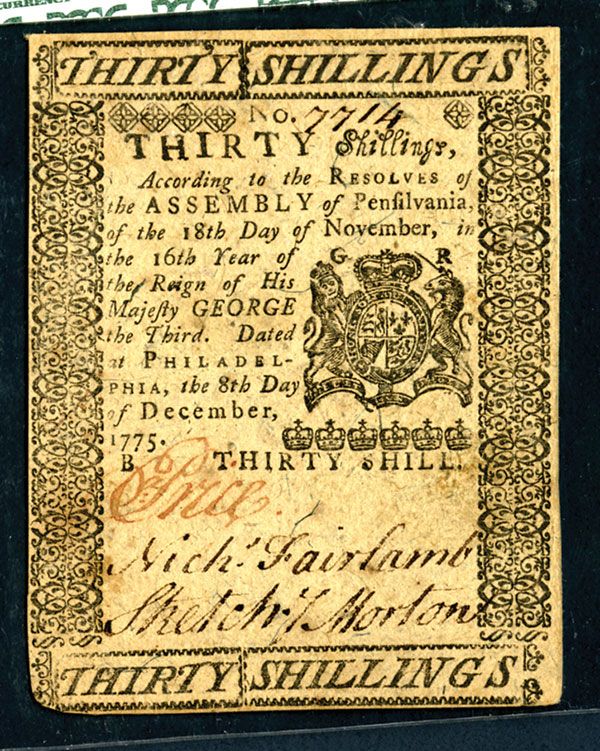 CURRENCY
THIRTY SHILLINGS
No. 7714
THIRTY Shillings,
According to the RESOLVES of
the ASSEMBLY of Penſilvania,
of the 18th Day of November, in
the 16th Year of
the Reign of His
Majeſty GEORGE
the Third. Dated
at PHILADEL-
PHIA, the 8th Day
of December,
1775.
G R
B THIRTY SHILL.
Price.
Nich.s Fairlamb
Sketch.y Morton
THIRTY SHILLINGS